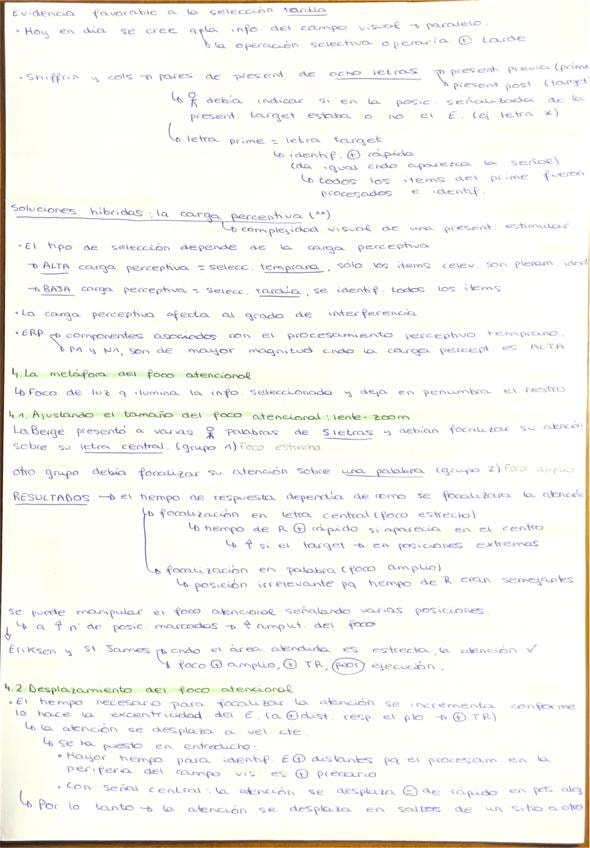 Evidencia favorable a la selección tardía
• Hoy en día se cree q la info. del campo visual → paralelo.
↳ la operación selectiva operaría ⊕ tarde
• Shiffrin y cols → pares de present. de ocho letras → present. previa (prime
↳ present. post. (target
↳ debía indicar si en la posic. señalizada de la
present. target estaba o no el E. (ej letra x)
↳ letra prime = letra target
↳ identif. ⊕ rápida
(da igual cndo aparezca la señal)
↳ todos los items del prime fueron
procesados e identif.
Soluciones híbridas: la carga perceptiva (^^)
↳ complejidad visual de una present. estimular
• El tipo de selección depende de la carga perceptiva
→ ALTA carga perceptiva = selecc. temprana, sólo los items relev. son plenam.
→ BAJA carga perceptiva = selecc. tardía, se identif. todos los items
• La carga perceptiva afecta al grado de interferencia
• ERP → componentes asociados con el procesamiento perceptivo temprano.
↳ P1 y N1, son de mayor magnitud cndo la carga percept es ALTA
4. La metáfora del foco atencional
↳ Foco de luz q ilumina la info. seleccionada y deja en penumbra el restro
4.1. Ajustando el tamaño del foco atencional: lente-zoom
LaBerge presentó a varias palabras de 5 letras y debían focalizar su atención
sobre su letra central. (grupo 1) Foco estrecho
otro grupo debía focalizar su atención sobre una palabra (grupo 2) Foco amplio
RESULTADOS → el tiempo de respuesta dependía de como se focalizara la atención
↳ focalización en letra central (foco estrecho)
↳ tiempo de R ⊕ rápido si aparecía en el centro
↳ ↑ si el target → en posiciones extremas
↳ focalización en palabra (foco amplio)
↳ posición irrelevante pq tiempo de R eran semejantes
Se puede manipular el foco atencional señalando varias posiciones.
↳ a ↑ nº de posic. marcadas → ↑ amplit. del foco
Eriksen y St James → cndo el área atendida es estrecha, la atención ✓
↳ foco ⊕ amplio, ⊕ TR, peor ejecución.
4.2. Desplazamiento del foco atencional
• El tiempo necesario para focalizar la atención se incrementa conforme
lo hace la excentricidad del E. (a ⊕ dist. resp. el pto → ⊕ TR)
↳ la atención se desplaza a vel. cte.
↳ Se ha puesto en entredicho:
• Mayor tiempo para identif. E ⊕ distantes pq el procesam. en la
periferia del campo vis. es ⊕ precario
• Con señal central: la atención se desplaza ⊜ de rápido en pos alej
↳ Por lo tanto → la atención se desplaza en saltos de un sitio a otro